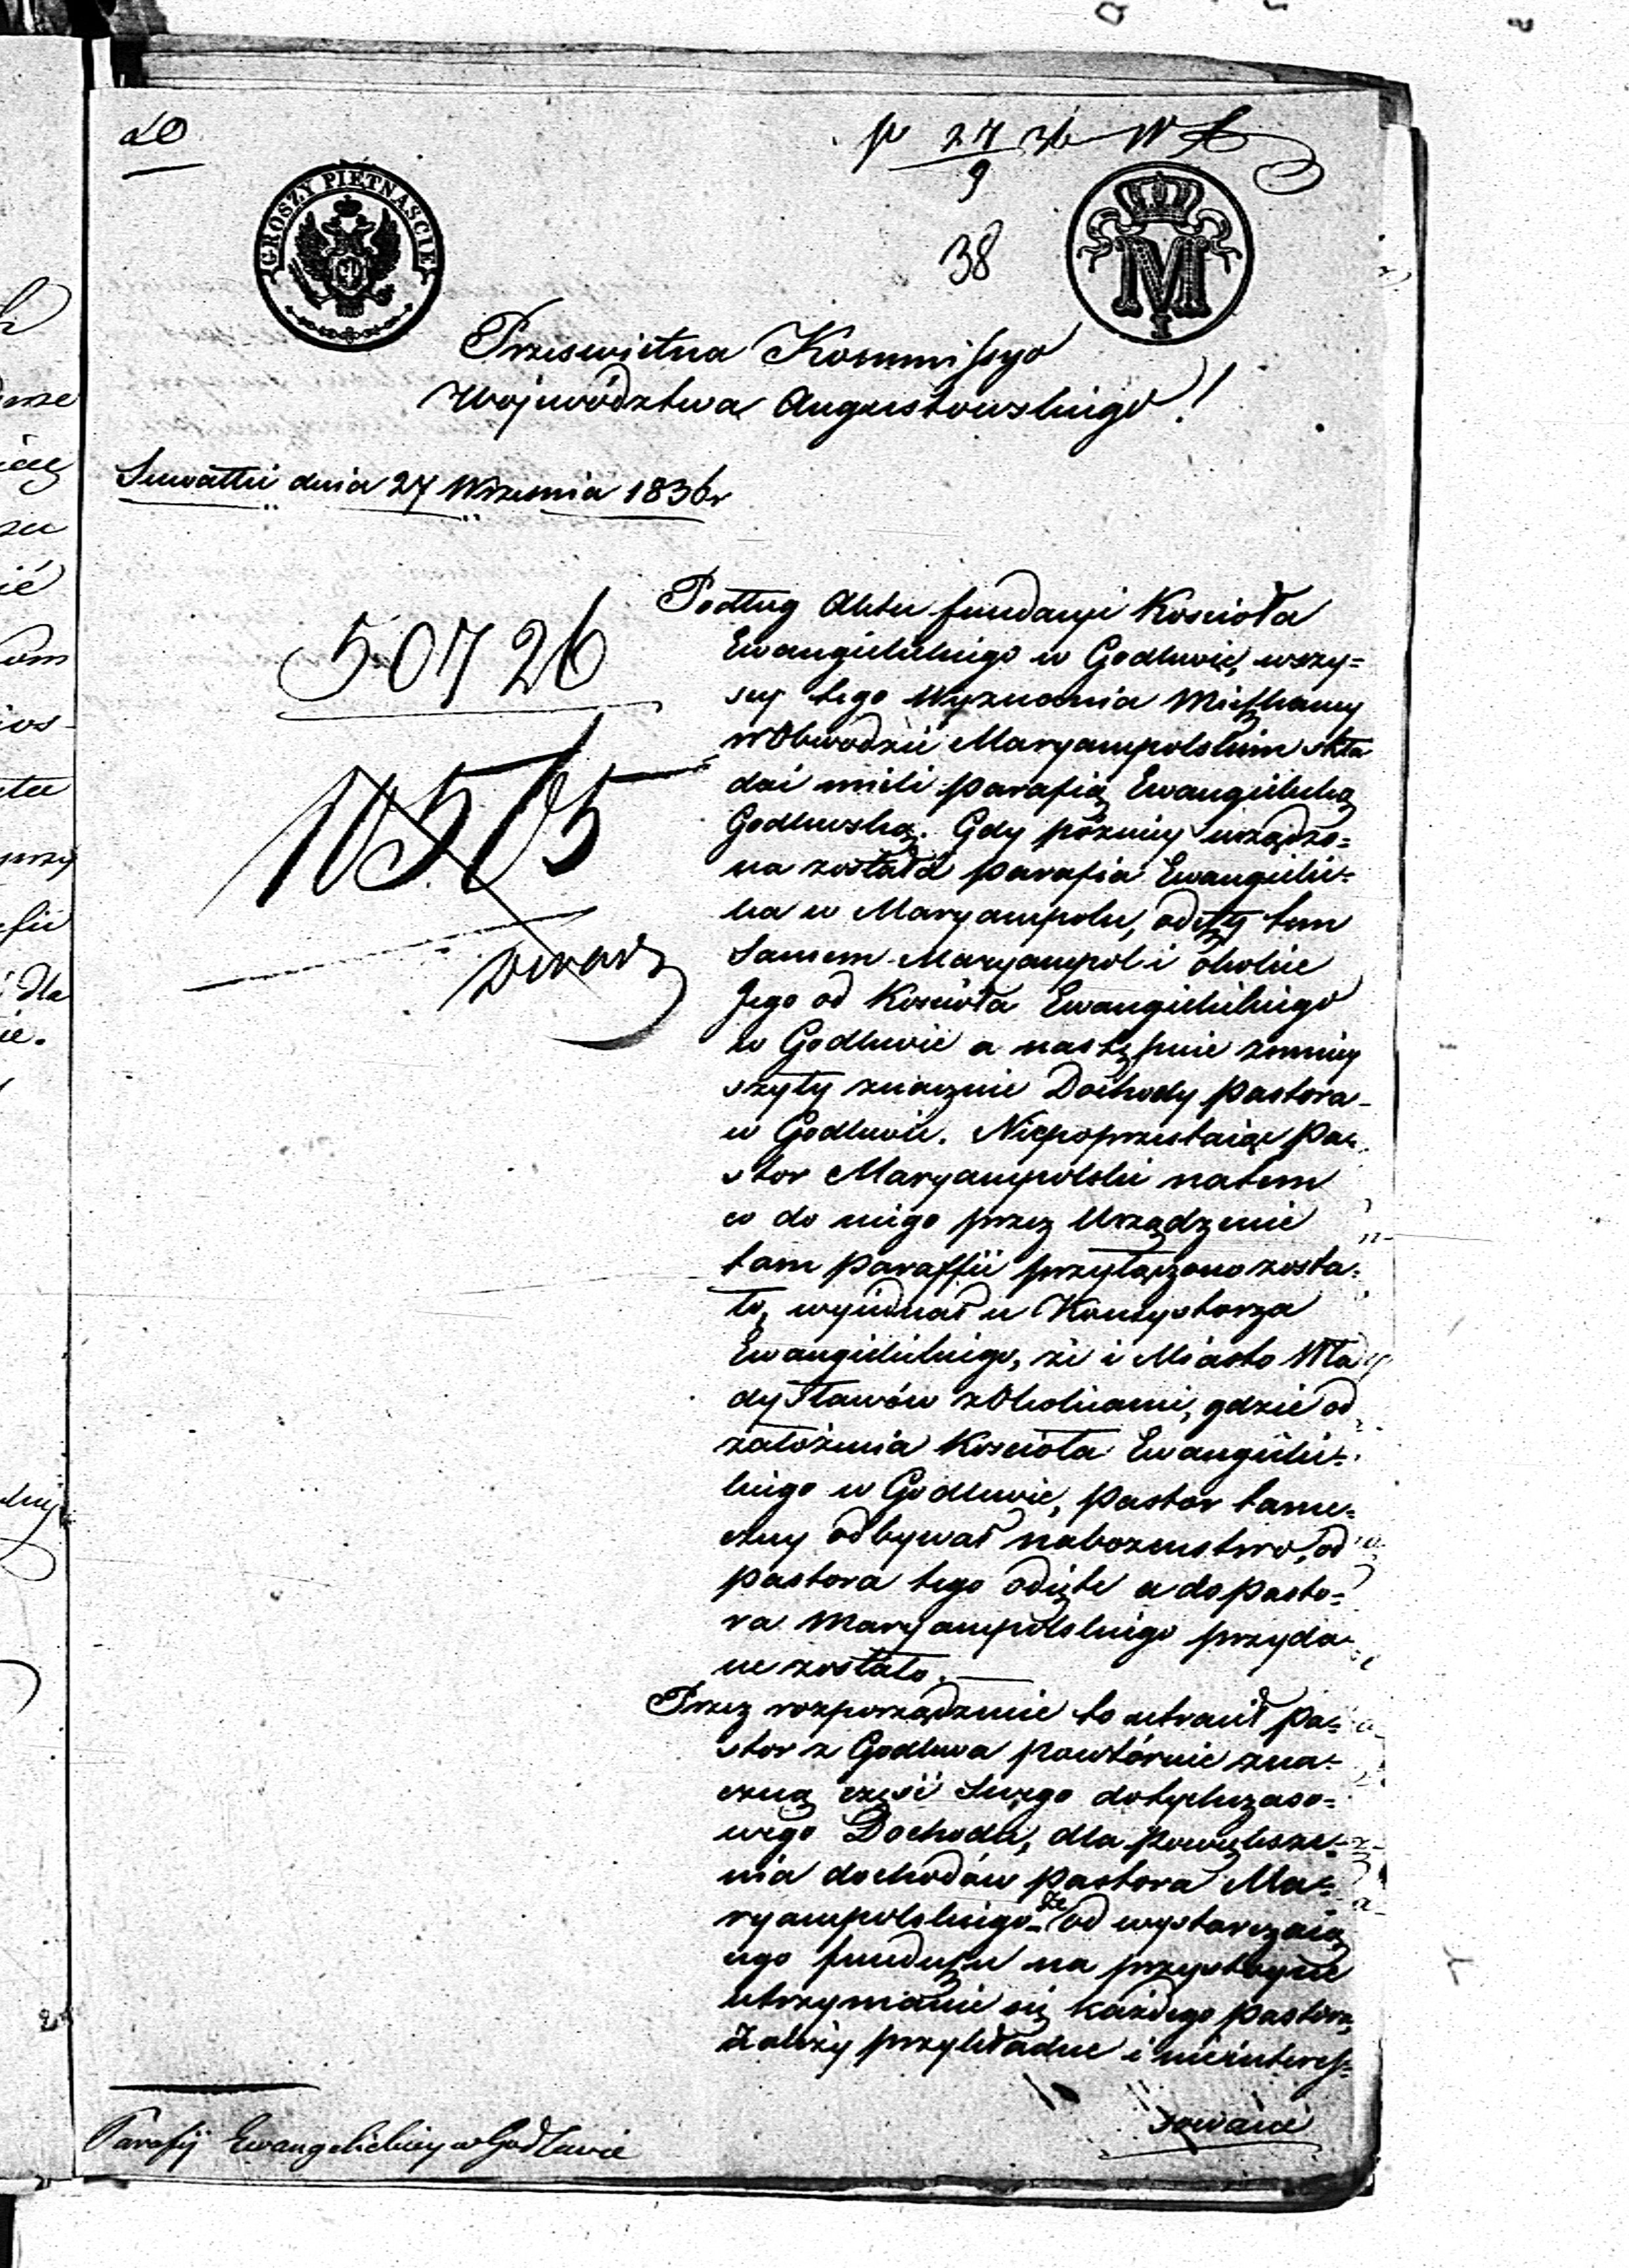 20
p 27/9 36 W
GROSZY PIĘTNAŚCIE
M
I
38
Przeswietna Kommissyo
Województwa Augustowskiego!
Suwałki dnia 27 Wrzesnia 1836 r
50726
10505
Podług Aktu fundacyi Kościoła
Ewangielickiego w Godlewie, wszy=
scy tego Wyznania Mieszkancy
w Obwodzie Maryampolskim skła
dać mieli parafią Ewangielicką
Godlewską. Gdy pózniey urządzo=
na została parafia Ewangielic=
ka w Maryampolu, odeszły tem
samem Maryampol i okolice
Jego od Kościoła Ewangielickiego
w Godlewie a następnie zmniey
szyły znacznie Dochody pastora
w Godlewie. Niepoprzestaiąc Pa=
stor Maryampolski natem
co do niego przez Urządzenie
tam paraffii przyłączono zosta=
ło, wyiednał u Konsystorza
Ewangielickiego, że i Miasto Wła
dysławów z Okolicami, gdzie od
założenia Kościoła Ewangielic=
kiego w Godlewie, pastor tame=
czny odbywał nabozenstwo, od
pastora tego odięte a do pasto=
ra Maryampolskiego przyda=
ne zostało.
Przez rozporządzenie to utracił Pa=
stor z Godlewa powtórnie zna=
czną część swego dotychczaso=
wego Dochodu, dla powiększe=
nia dochodów pastora Ma=
ryampolskiego. Że od wystarczaią
cego funduszu na przystoyne
utrzymanie się każdego pastora,
zależy przykładne i nieinteress=
sowane
Parafij Ewangelickiey w Godlewie